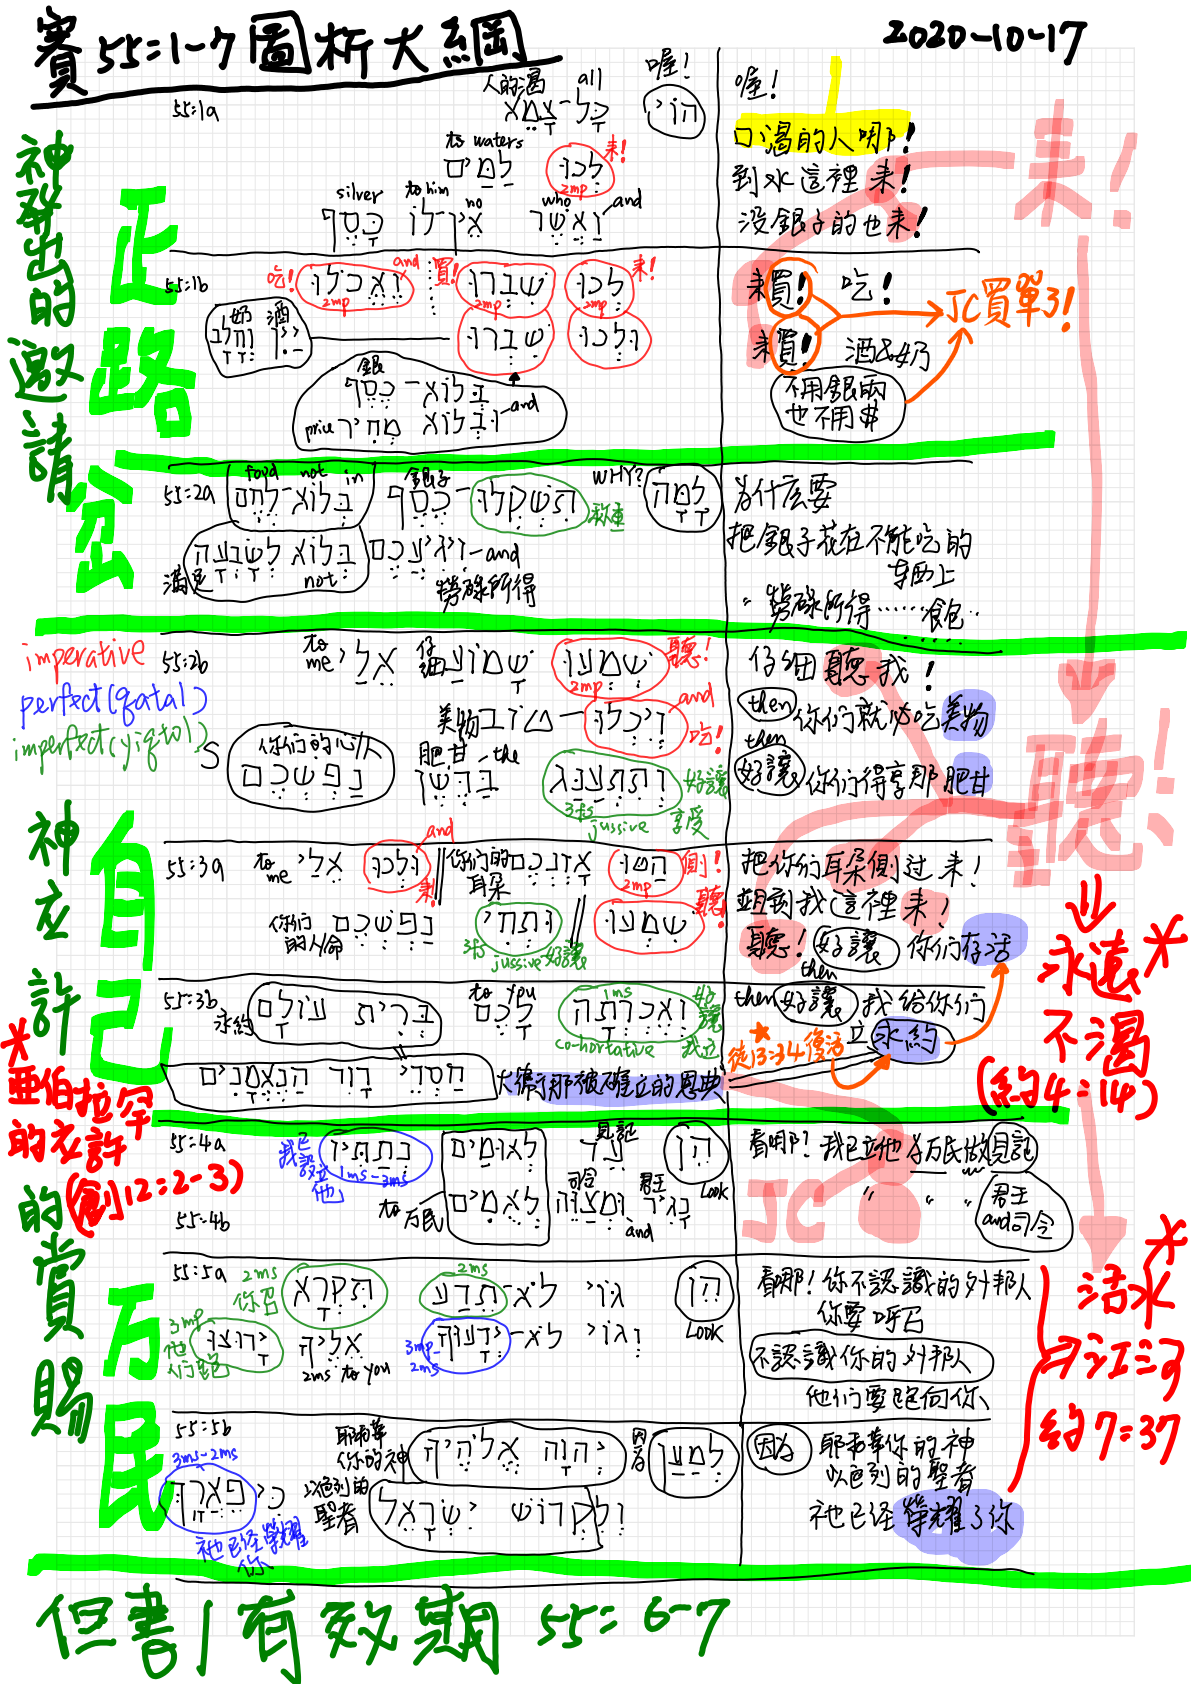 賽 55:1-7 圖析大綱
2020-10-17
神發出的邀請
正路
岔
55:1a
人的渴 all 喔!
כָּל־צָמֵא הוֹי
to waters 來!
לַמַּיִם לְכוּ
2mp
silver to him no who and
וַאֲשֶׁר אֵין־לוֹ כָּסֶף
喔!
口渴的人哪!
到水這裡來!
沒銀子的也來!
來!
55:1b
吃! and 買! 來!
לְכוּ שִׁבְרוּ וֶאֱכֹלוּ
2mp 2mp 2mp
奶 酒
יַיִן וְחָלָב
וּלְכוּ שִׁבְרוּ
銀
בְּלוֹא־כֶסֶף
and
price
וּבְלוֹא מְחִיר
來買! 吃!
來買! 酒&奶
不用銀兩
也不用$
JC買單了!
55:2a
food not in 銀子 WHY?
לָמָּה תִשְׁקְלוּ־כֶסֶף בְּלוֹא־לֶחֶם
称重
滿足 not and
וִיגִיעֲכֶם בְּלוֹא לְשָׂבְעָה
勞碌所得
为什么要
把銀子花在不能吃的
东西上
" 勞碌所得……飽..
imperative
perfect(qatal)
imperfect(yiqtol)
55:2b
to me 仔細 聽!
שִׁמְעוּ שָׁמוֹעַ אֵלַי
2mp
美物 and 吃!
וְאִכְלוּ־טוֹב
S 你们的心/人 肥甘 the
וְתִתְעַנַּג בַּדֶּשֶׁן נַפְשְׁכֶם
3fs jussive 好讓 享受
仔细聽我!
then 你们就必吃美物
then
好讓 你们得享那肥甘
聽!
神应許的賞賜
自己
55:3a
to me and 來! 你们的耳朵 側!
הַטּוּ אָזְנְכֶם וּלְכוּ אֵלַי
2mp
聽!
你们的人/命
שִׁמְעוּ וּתְחִי נַפְשְׁכֶם
3fs jussive 好讓
把你们耳朵側过来!
並到我這裡來!
聽! 好讓 你们存活
then
永遠
不渴
(約4:14)
55:3b
永約 to you 1ms 好讓
וְאֶכְרְתָה לָכֶם בְּרִית עוֹלָם
co-hortative 我立
חַסְדֵי דָוִד הַנֶּאֱמָנִים
大衛那被確立的恩典
then 好讓 我給你们
立永約
徒13:34 復活
亞伯拉罕
的应許
(創12:2-3)
万民
55:4a
我已設立他 見証
הֵן עֵד לְאוּמִּים נְתַתִּיו
1ms-3ms Look
55:4b
to 万民 司令 君王
נָגִיד וּמְצַוֵּה לְאֻמִּים
and
看哪! 我已立他 为万民做見証
" " " 君王
and司令
JC
55:5a
2ms 你召 2ms
הֵן גּוֹי לֹא־תֵדַע תִּקְרָא
Look
3mp 他们跑
וְגוֹי לֹא־יְדָעוּךָ אֵלֶיךָ יָרוּצוּ
2ms to you 3mp-2ms
看哪! 你不認識的外邦人
你要呼召
不認識你的外邦人
他们要跑向你
活水
江河
約7:37
55:5b
耶和華
你的神 因为
לְמַעַן יְהוָה אֱלֹהֶיךָ
3ms-2ms
以色列的
聖者
וְלִקְדוֹשׁ יִשְׂרָאֵל כִּי פֵאֲרָךְ
祂已经榮耀
你
因为 耶和華你的神
以色列的聖者
祂已经榮耀了你
但書/有效期 55:6-7